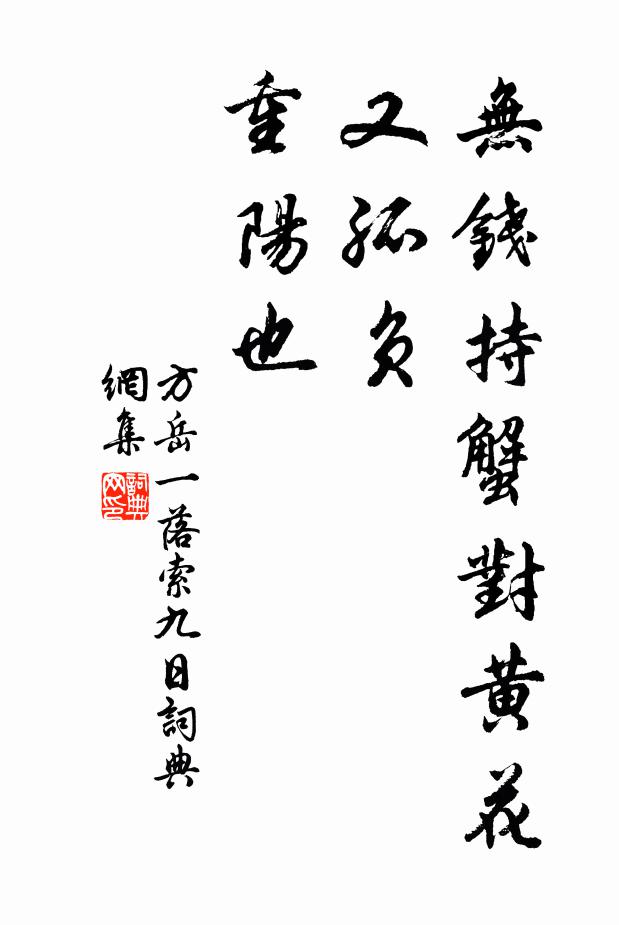 無錢持蟹對黄花
又孤負
重陽也
方岳一落索九日詞典
網集
詞典
网印